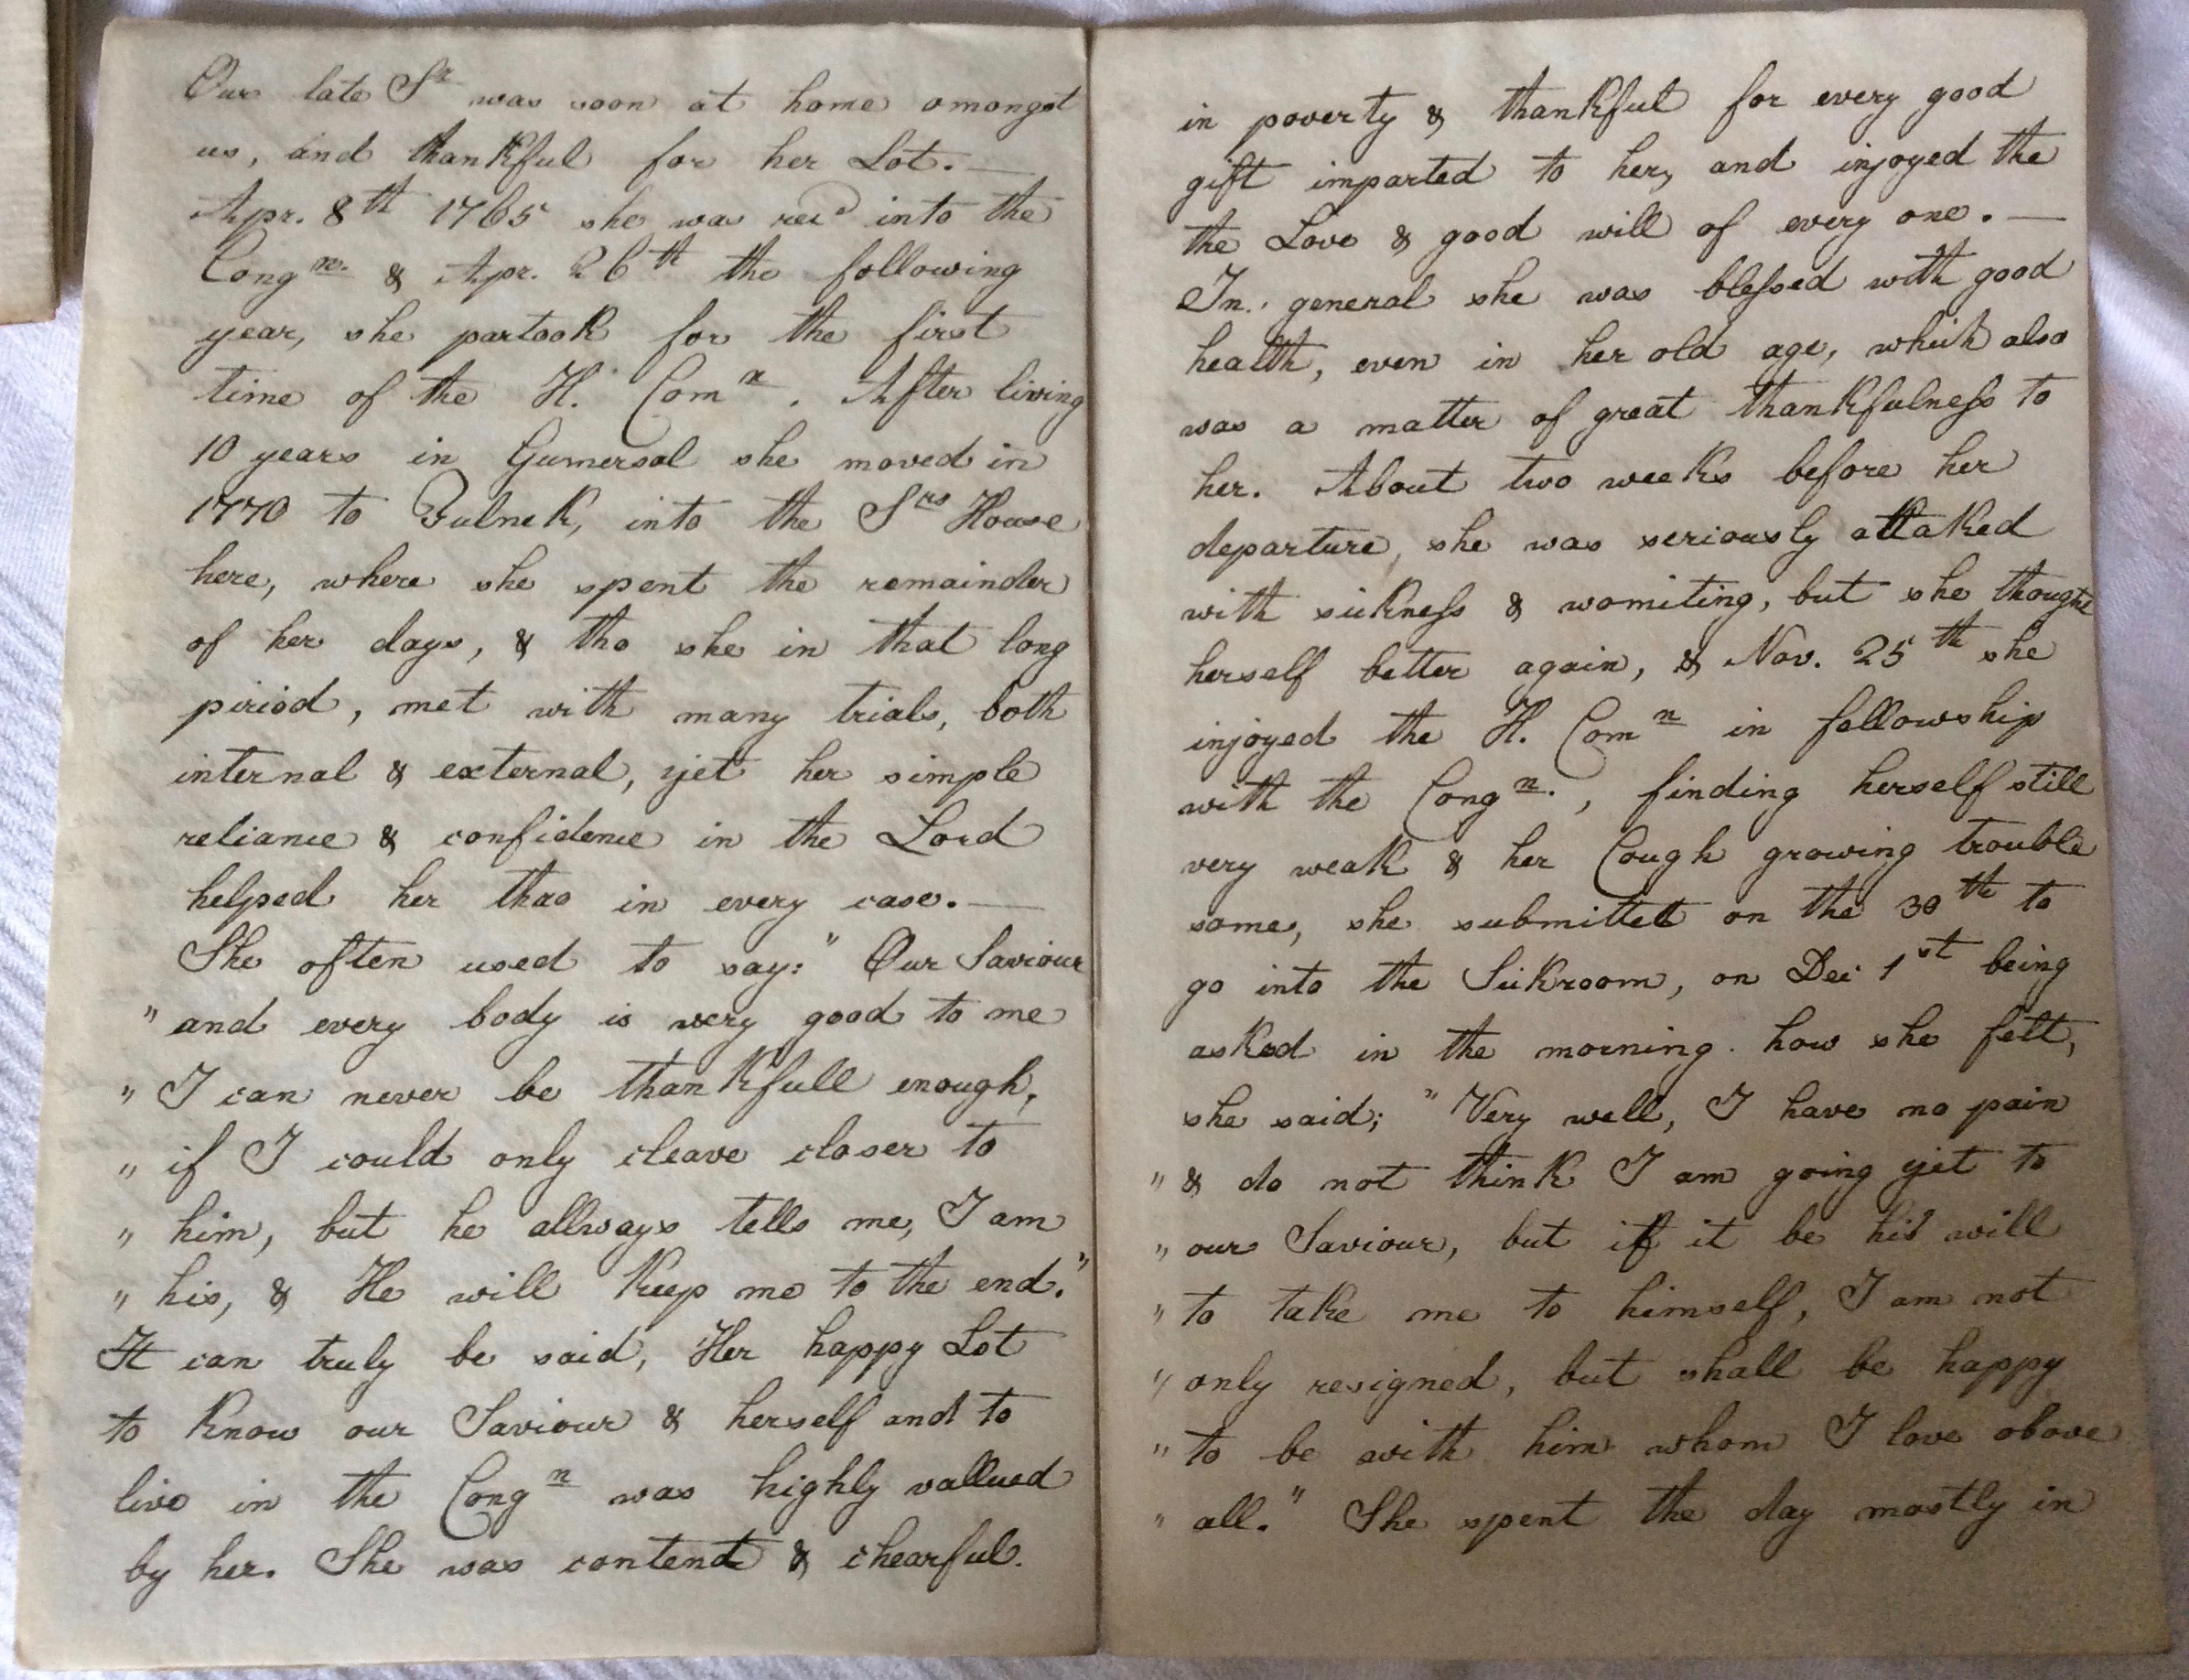 Our late Sr was soon at home amongst
us, and thankful for her Lot. —
Apr. 8th 1765 she was recd into the
Congn. & Apr. 26th the following
year, she partook for the first
time of the H. Comn. After living
10 years in Gumersal she moved in
1770 to Fulnek, into the Srs House
here, where she spent the remainder
of her days, & tho she in that long
piriod, met with many trials, both
internal & external, yet her simple
reliance & confidence in the Lord
helped her thro in every case. —
She often used to say: " Our Saviour
" and every body is very good to me
" I can never be thankfull enough,
" if I could only cleave closer to
" him, but he allways tells me, I am
" his, & He will keep me to the end."
It can truly be said, Her happy Lot
to know our Saviour & herself and to
live in the Congn was highly vallued
by her. She was contend & chearful.
in poverty & thankful for every good
gift imparted to her, and injoyed the
the Love & good will of every one. —
In general she was blessed with good
health, even in her old age, which also
was a matter of great thankfulness to
her. About two weeks before her
departure, she was seriously attaked
with sickness & womiting, but she thought
herself better again, & Nov. 25th she
injoyed the H. Comn in fellowship
with the Congn., finding herself still
very weak & her Cough growing trouble
some, she submittet on the 30th to
go into the Sickroom, on Dec 1st being
asked in the morning how she felt,
she said; " Very well, I have no pain
" & do not think I am going yet to
" our Saviour, but if it be his will
" to take me to himself, I am not
" only resigned, but shall be happy
" to be with him whom I love above
" all." She spent the day mostly in